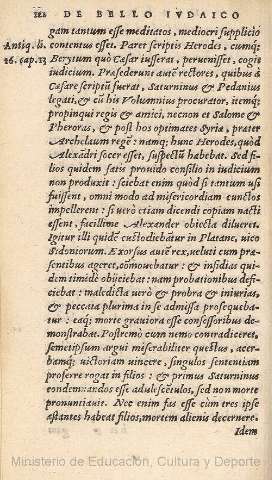 122 DE BELLO IVDAICO
gam tantum esse meditatos, mediocri supplicio
Antiq. li. contentus esset. Paret scriptis Herodes, cumq;
16. cap. 13 Berytum quò Cæsar iusserat, peruenisset, cogit
iudicium. Præsederunt autē rectores, quibus à
Cæsare scriptū fuerat, Saturninus & Pedanius
legati, & cū his Volumnius procurator, itemq;
propinqui regis & amici, necnon et Salome &
Pheroras, & post hos optimates Syriæ, præter
Archelaum regē: namq; hunc Herodes, quòd
Alexādri socer esset, suspectū habebat. Sed fi-
lios quidem satis prouido consilio in iudicium
non produxit: sciebat enim quòd si tantum uisi
fuissent, omni modo ad misericordiam cunctos
impellerent: si verò etiam dicendi copiam nacti
essent, facillime Alexander obiecta dilueret.
Igitur illi quidē custodiebātur in Platane, vico
Sidoniorum. Exorsus autē rex, veluti cum præ-
sentibus ageret, cōmouebatur: & insidias qui-
dem timidè obijciebat: nam probationibus defi-
ciebat: maledicta verò & probra & iniurias,
& peccata plurima in se admissa prosequeba-
tur: atq; morte grauiora esse consessoribus de-
monstrabat. Postremò cum nemo contradiceret,
semetipsum argui miserabiliter questus, acer-
bamq; victoriam vincere, singulos sententiam
proferre rogat in filios: & primus Saturninus
condemnandos esse adulescētulos, sed non morte
pronuntiauit. Nec enim fas esse cùm tres ipse
astantes habeat filios, mortem alienis decernere.
Idem
Ministerio de Educación, Cultura y Deporte